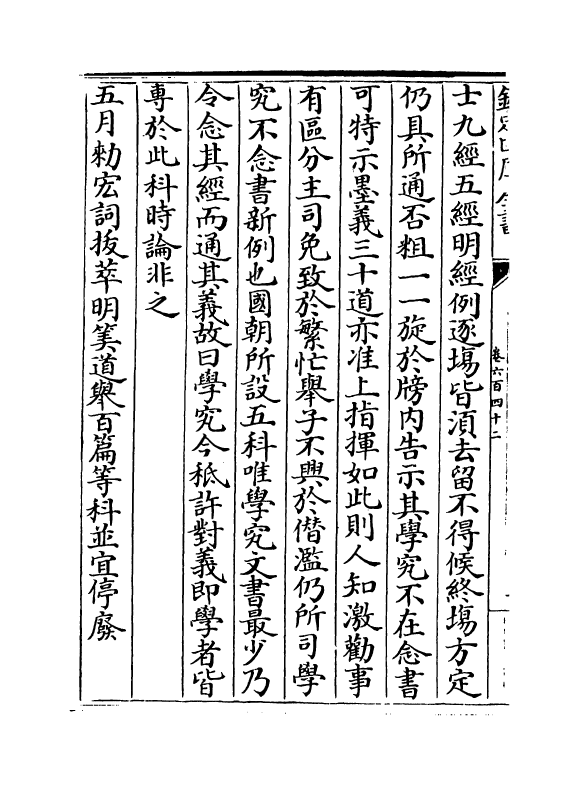 士九經五經明經例逐塲皆湏去留不得候終塲方定
仍具所通否粗一一旋於牓内告示其學究不在念書
可特示墨義三十道亦准上指揮如此則人知激勸事
有區分主司免致於繁忙舉子不興於僭濫仍所司學
究不念書新例也國朝所設五科唯學究文書最少乃
令念其經而通其義故曰學究今秪許對義即學者皆
專於此科時論非之
五月勑宏詞拔萃明筭道舉百篇等科並宜停廢
卷六百四十二